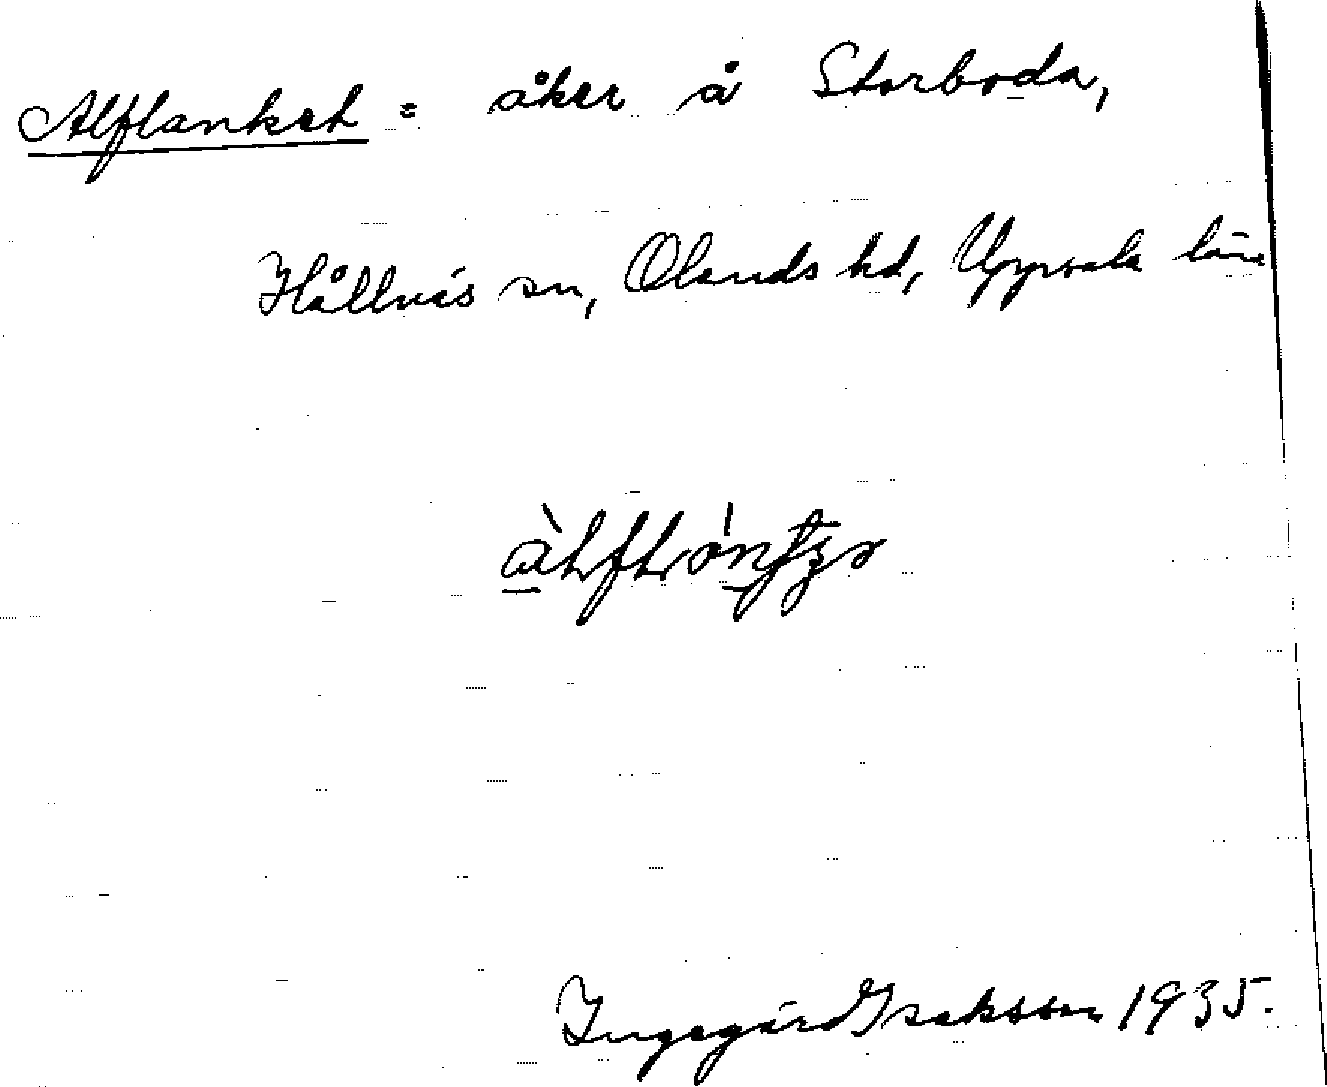 Alflanket = åker å Storboda,
Hållnäs sn, Olands hd, Uppsala län
Ingegärd Isaksson 1935.